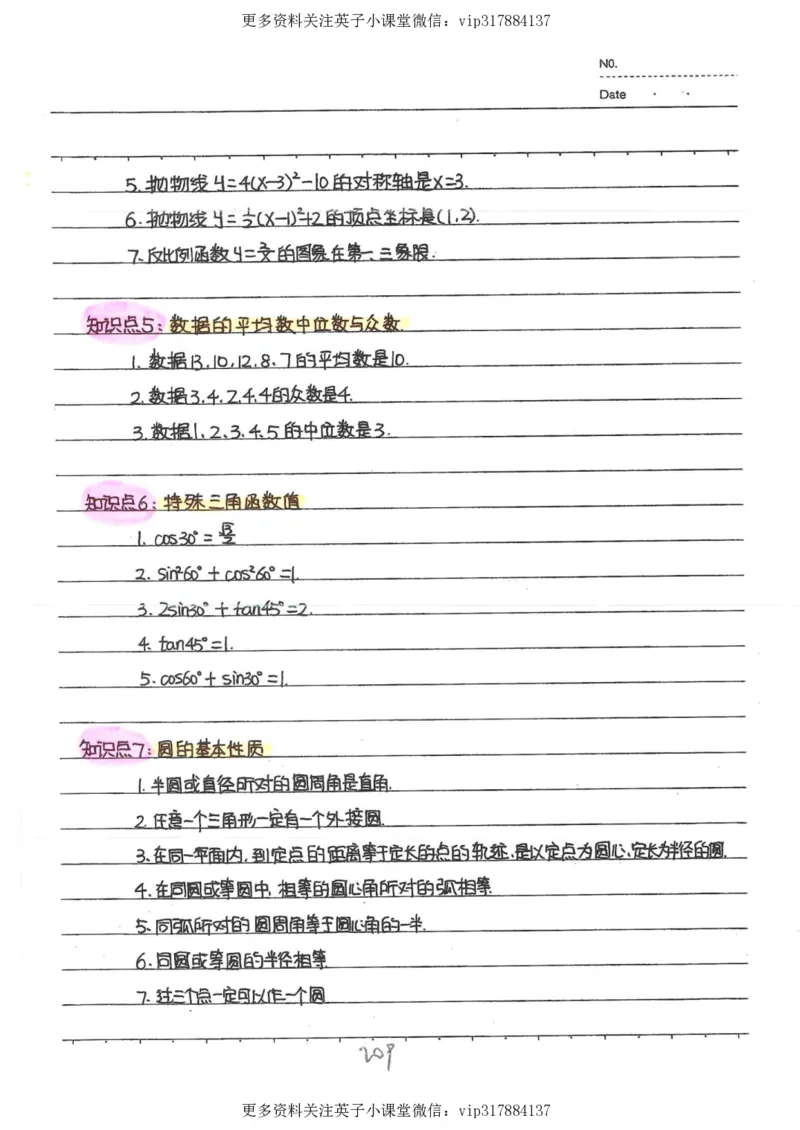 更多资料关注英子小课堂微信：vip317884137
NO.
Date
5. 抛物线y=4(x-3)²-10的对称轴是x=3.
6. 抛物线y=½(x-1)²+2的顶点坐标是(1,2).
7. 反比例函数y=2/x的图象在第一、三象限.
知识点5: 数据的平均数中位数与众数.
1. 数据13,10,12,8,7的平均数是10.
2. 数据3,4,2,4,4的众数是4.
3. 数据1、2、3、4、5的中位数是3.
知识点6: 特殊三角函数值
1. cos30°=√3/2
2. sin²60°+cos²60°=1.
3. 2sin30°+tan45°=2.
4. tan45°=1.
5. cos60°+sin30°=1.
知识点7: 圆的基本性质
1. 半圆或直径所对的圆周角是直角.
2. 任意一个三角形一定有一个外接圆.
3. 在同一平面内,到定点的距离等于定长的点的轨迹,是以定点为圆心,定长为半径的圆.
4. 在同圆或等圆中,相等的圆心角所对的弧相等.
5. 同弧所对的圆周角等于圆心角的一半.
6. 同圆或等圆的半径相等.
7. 过三个点一定可以作一个圆.
209
更多资料关注英子小课堂微信：vip317884137